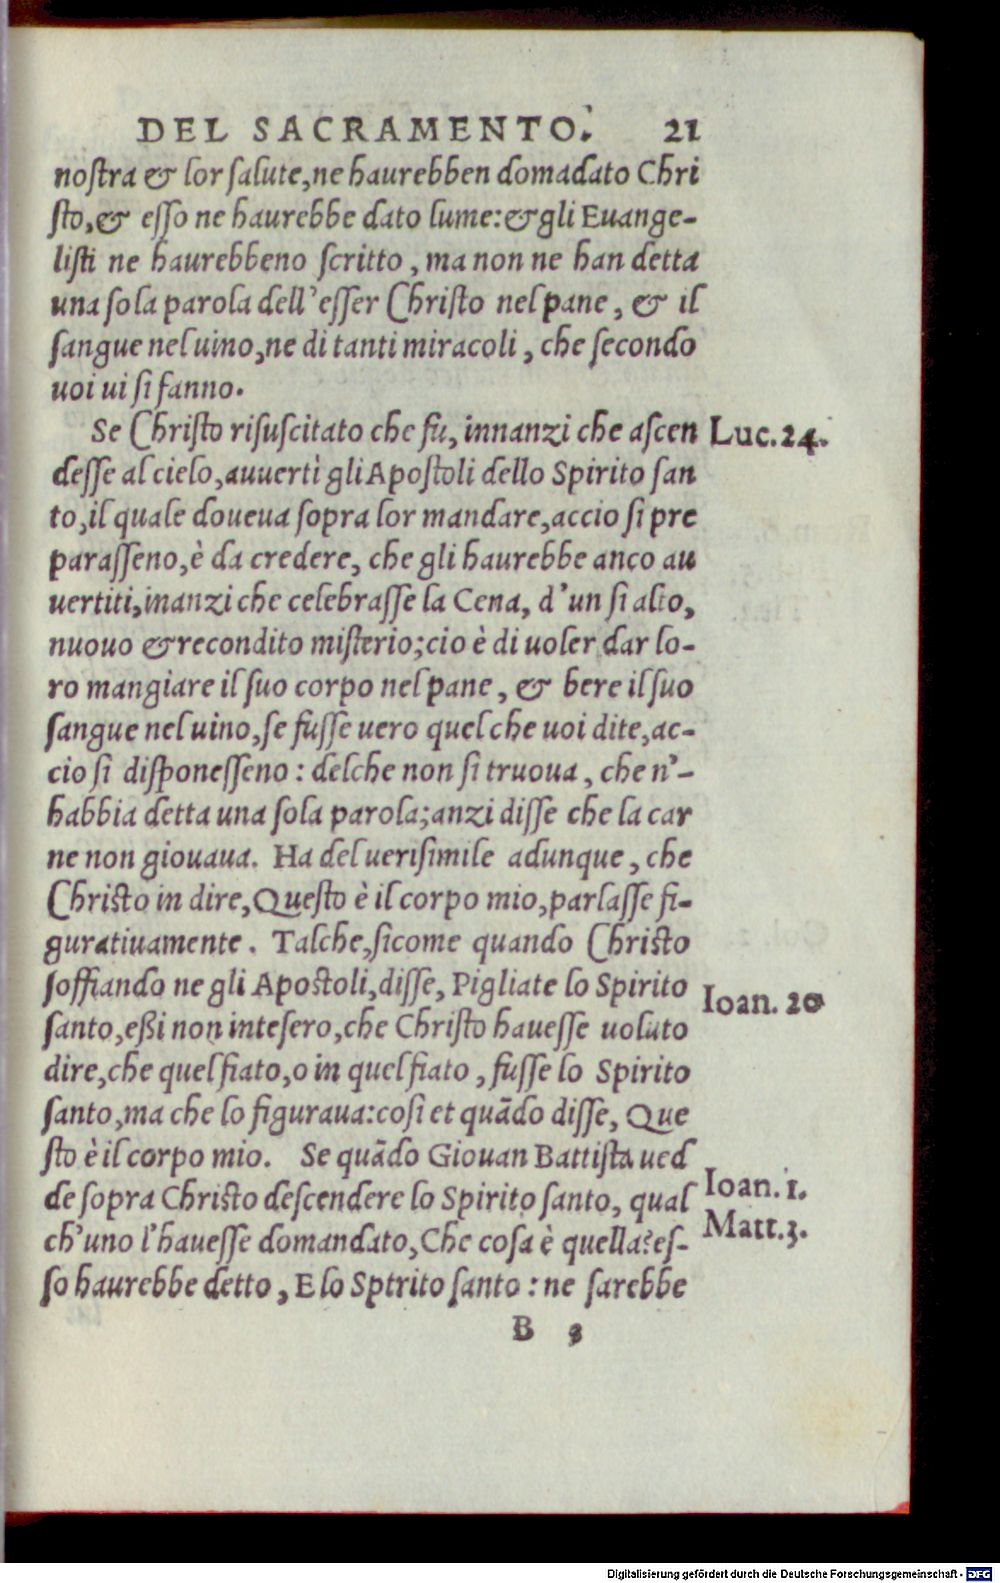 DEL SACRAMENTO. 21
nostra & lor salute, ne haurebben domādato Chri
sto, & esso ne haurebbe dato lume: & gli Euange-
listi ne haurebbeno scritto, ma non ne han detta
una sola parola dell'esser Christo nel pane, & il
sangue nel uino, ne di tanti miracoli, che secondo
uoi ui si fanno.
Se Christo risuscitato che fu, innanzi che ascen Luc. 24.
desse al cielo, auuertì gli Apostoli dello Spirito san
to, il quale doueua sopra lor mandare, accio si pre
parasseno, è da credere, che gli haurebbe anco au
uertiti, inanzi che celebrasse la Cena, d'un si alto,
nuouo & recondito misterio; cio è di uoler dar lo-
ro mangiare il suo corpo nel pane, & bere il suo
sangue nel uino, se fusse uero quel che uoi dite, ac-
cio si disponesseno: delche non si truoua, che n'-
habbia detta una sola parola; anzi disse che la car
ne non giouaua. Ha del uerisimile adunque, che
Christo in dire, Questo è il corpo mio, parlasse fi-
guratiuamente. Talche, sicome quando Christo
soffiando ne gli Apostoli, disse, Pigliate lo Spirito Ioan. 20
santo, eßi non intesero, che Christo hauesse uoluto
dire, che quel fiato, o in quel fiato, fusse lo Spirito
santo, ma che lo figuraua: cosi et quādo disse, Que
sto è il corpo mio. Se quādo Giouan Battista ued
de sopra Christo descendere lo Spirito santo, qual Ioan. 1.
ch'uno l'hauesse domandato, Che cosa è quella? es- Matt. 3.
so haurebbe detto, E lo Sptrito santo: ne sarebbe
B 3
Digitalisierung gefördert durch die Deutsche Forschungsgemeinschaft - DFG